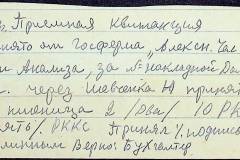 Приемная Квитанция
нято от Госферма „Алексн. Час
и Анализа, за № накладной Da
через Шевченко Н принят
пшеница 2 /Два/ 10 Р
ять/. РККС Принял /. подпись
линным Верно: Бухгалтер